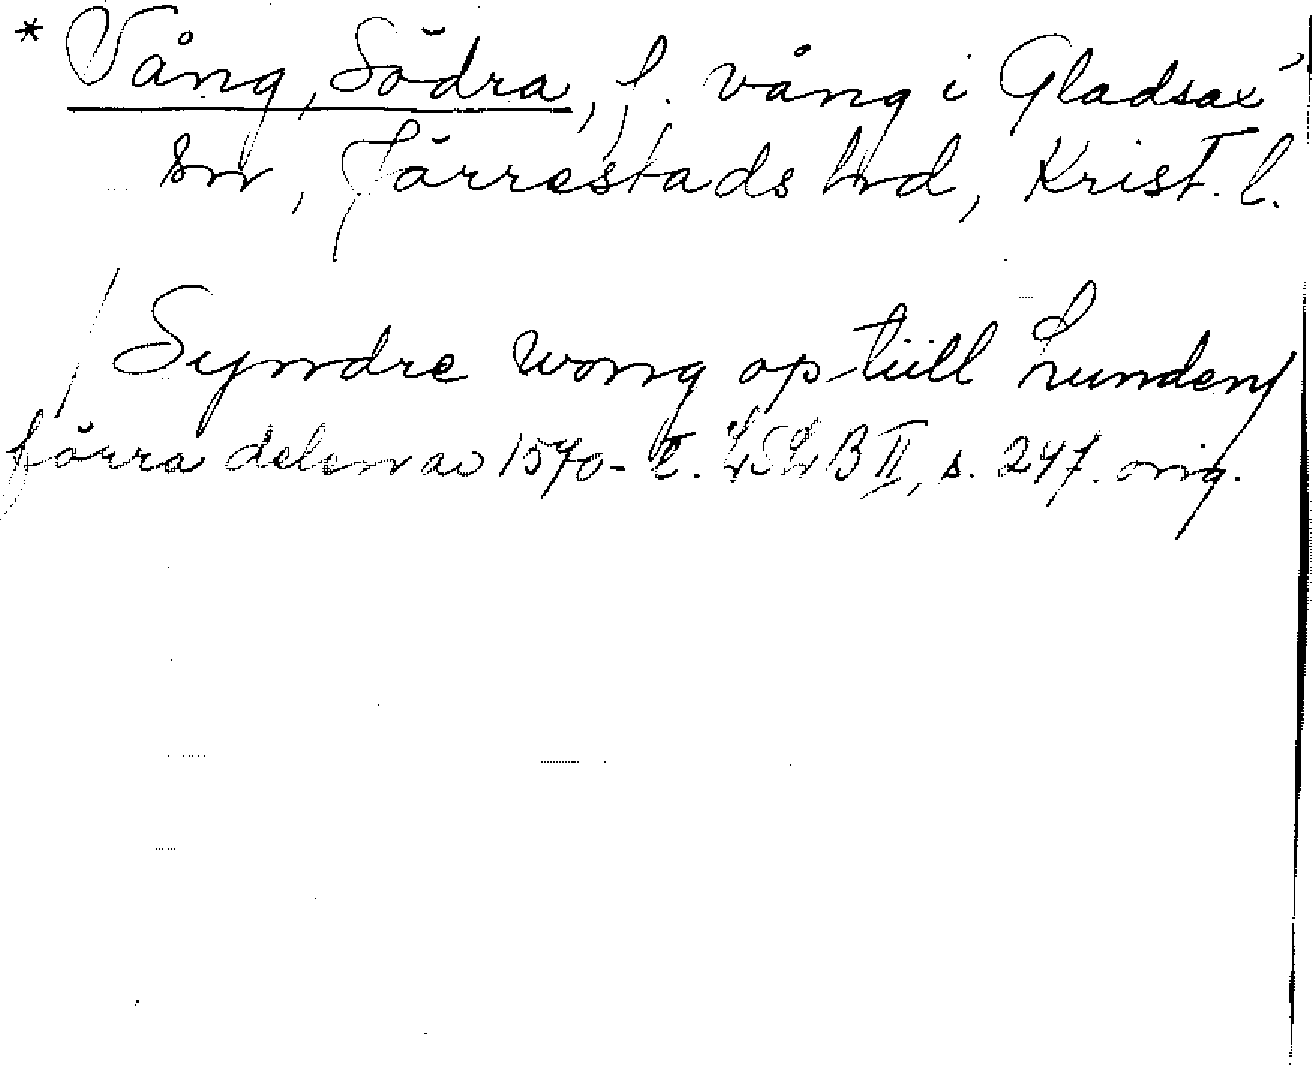 * Vång, Södra, f. vång i Gladsax
sn, Järrestads hrd, Krist. l.
/ Syndre wong op tiill Lunden/
förra delen av 1570-t. LSLB II, s. 247. orig.